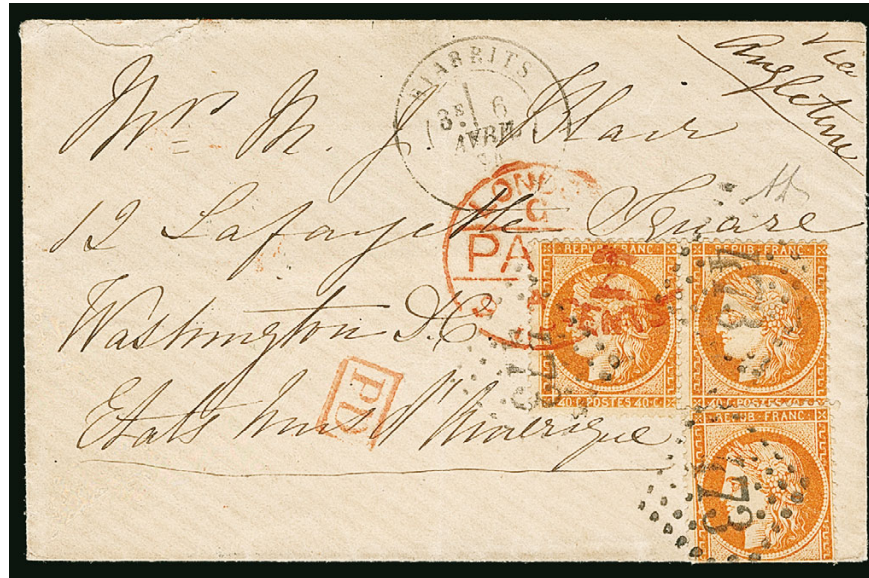 Via
Angleterre
BIARRITS
3E 6
AVRIL
Mrs M. J. Blair
12 Lafayette Square
Washington DC
Etats Unis d'Amerique
LONDON
PA
PD
REPUB. FRANC.
40 C. POSTES 40 C.
REPUB. FRANC.
40 C. POSTES 40 C.
REPUB. FRANC.
473
473
473